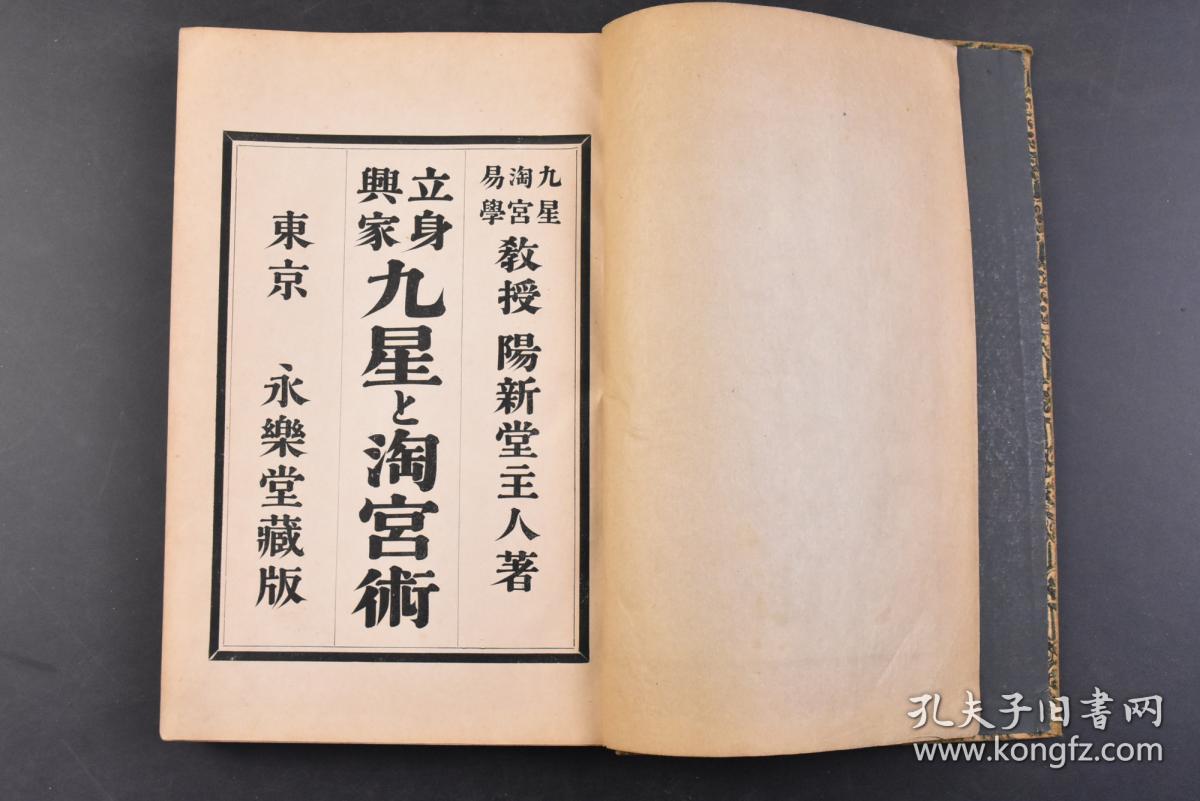 九星淘宮易學 教授 陽新堂主人著
立身興家 九星と淘宮術
東京 永樂堂藏版
孔夫子旧书网
www.kongfz.com